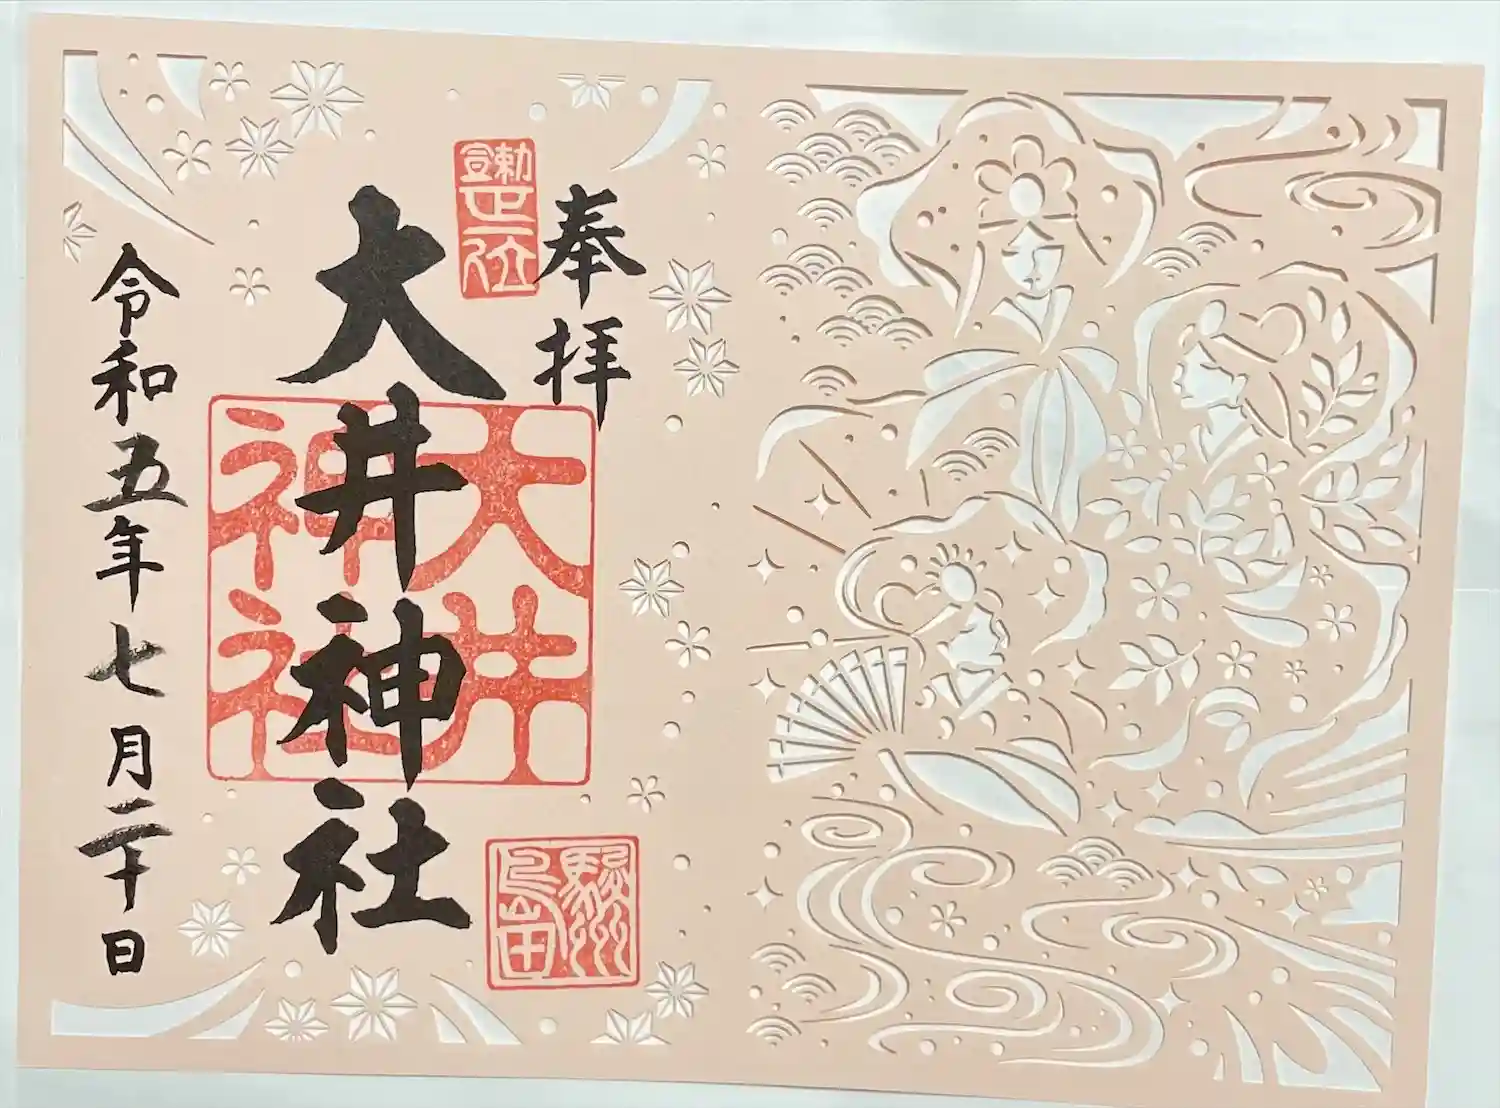 奉拝
勅宣正一位
大井神社
大井神社
駿州島田
令和五年七月二十日